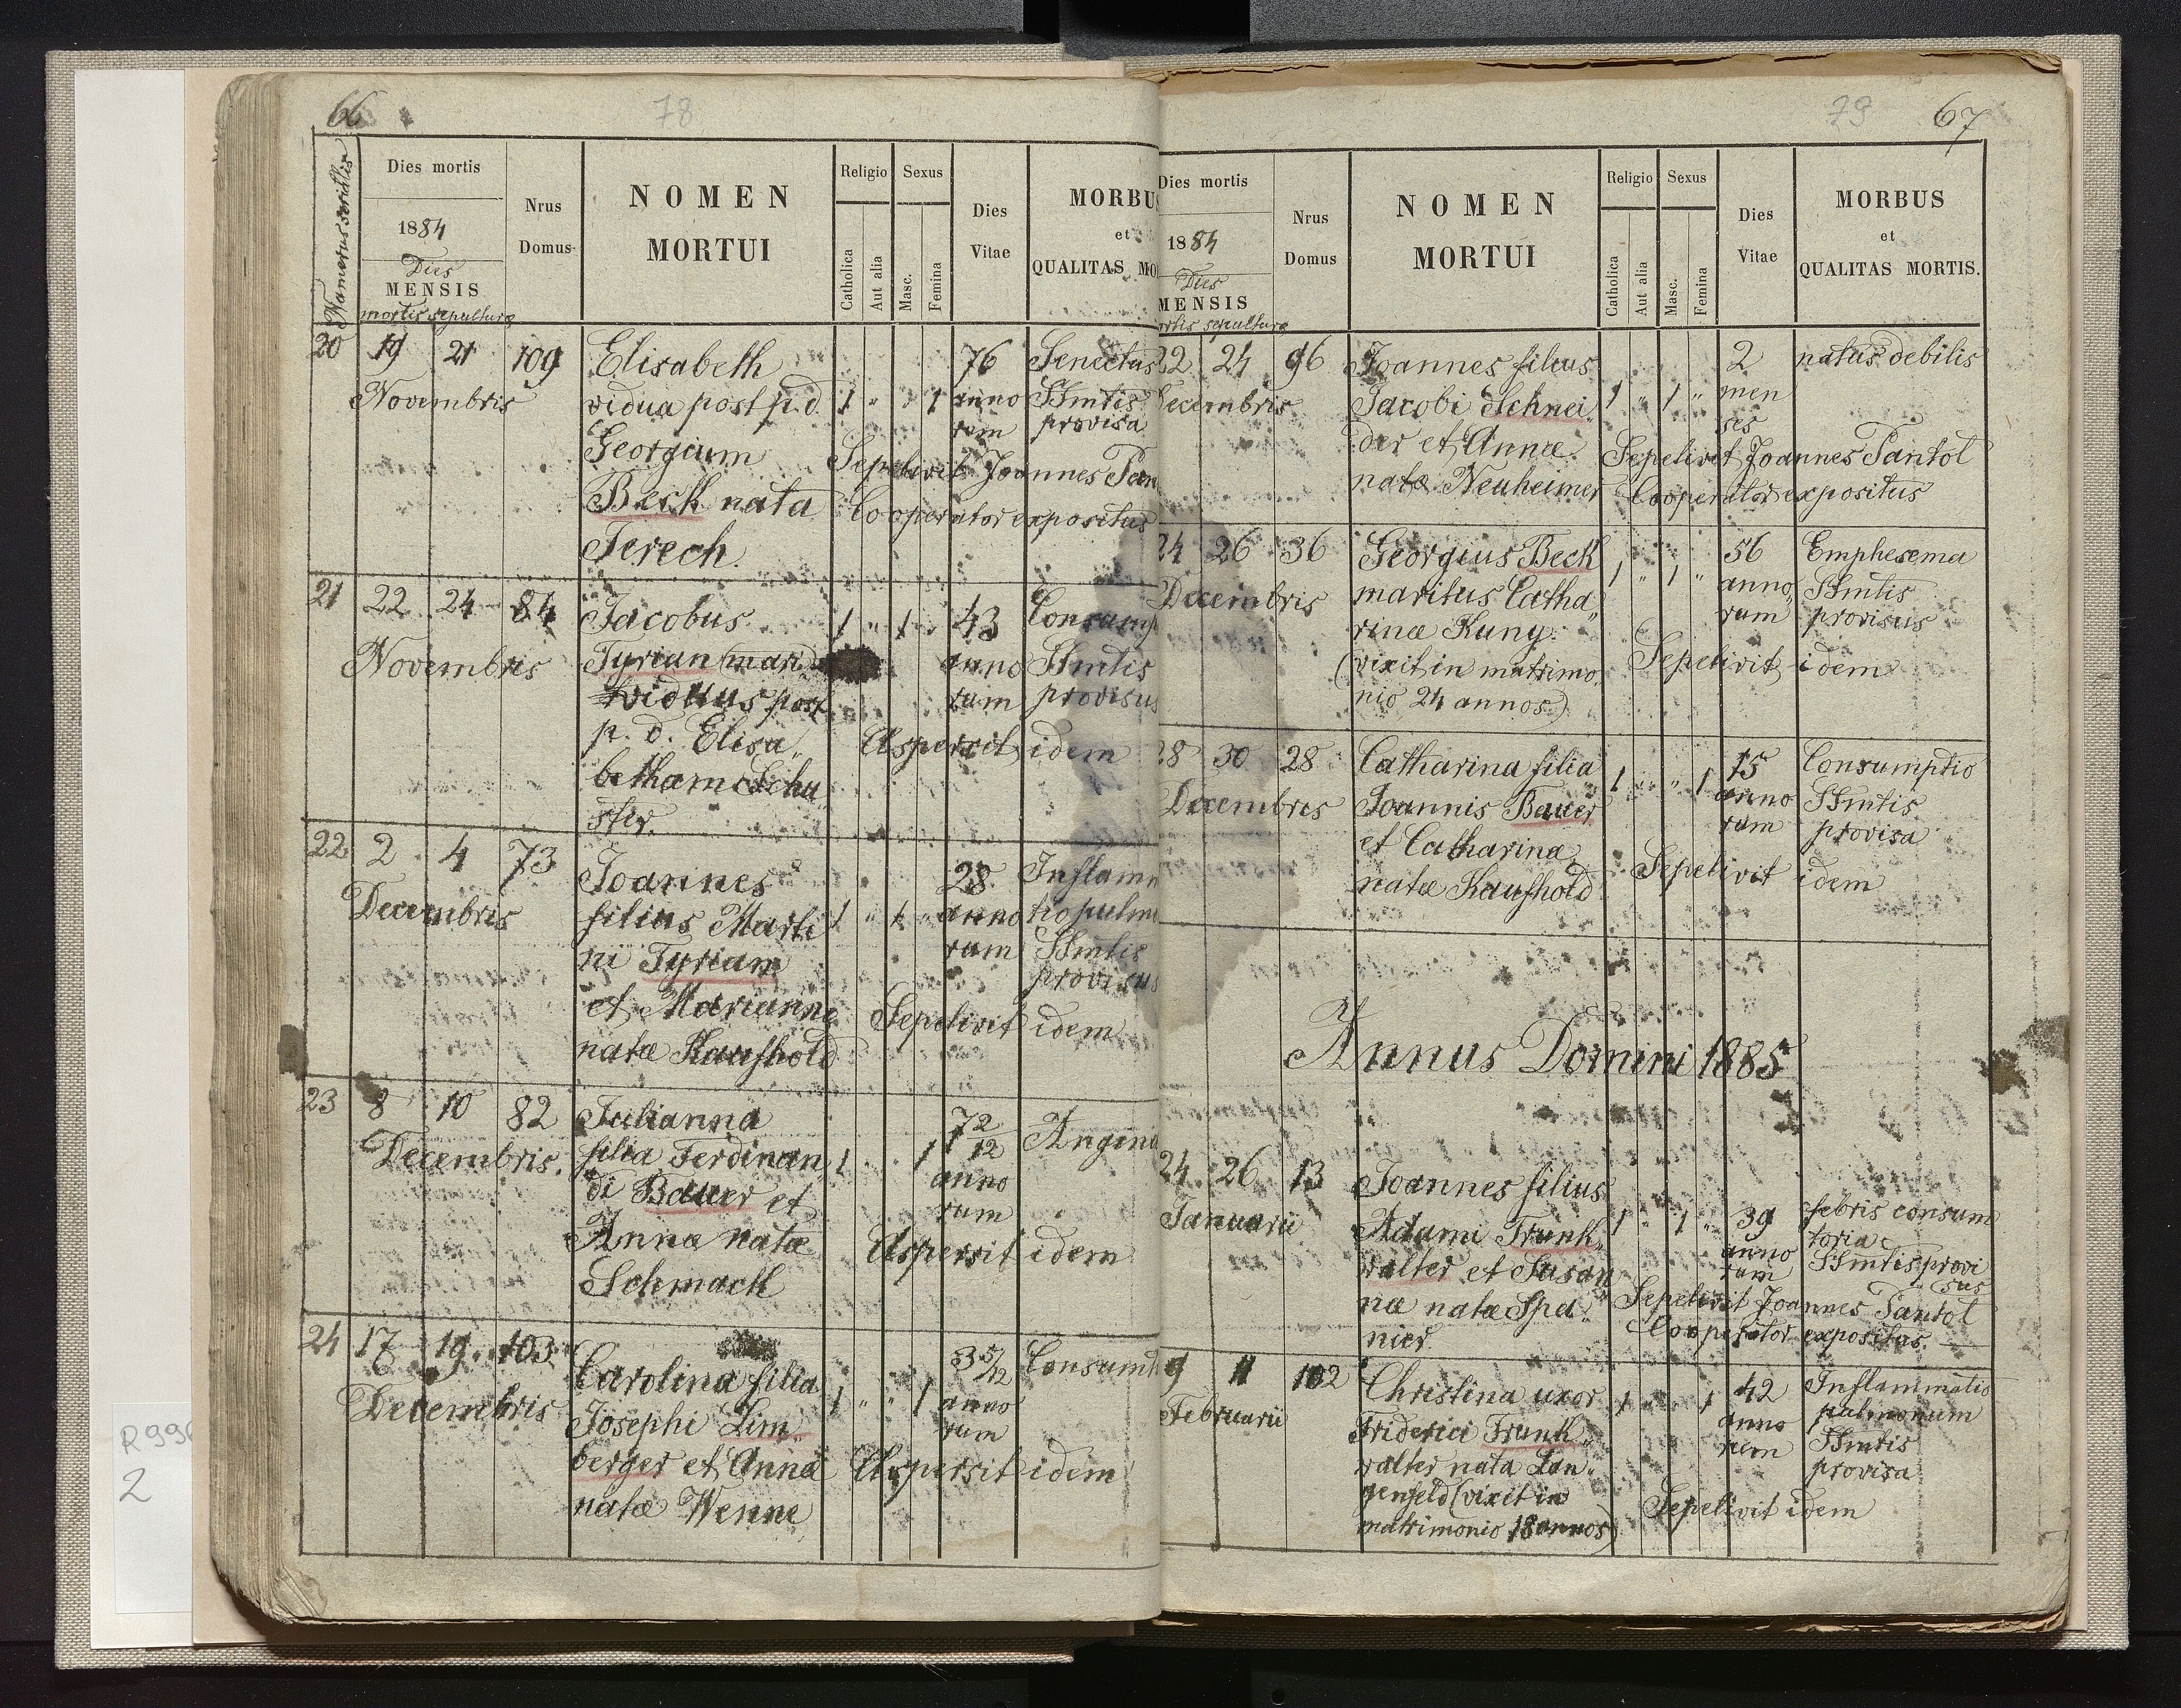 66
78
Numerus serialis
Dies mortis
1884
Dies
MENSIS
mortis sepulturæ
Nrus
Domus
NOMEN
MORTUI
Religio
Catholica
Aut alia
Sexus
Masc.
Femina
Dies
Vitae
MORBUS
et
QUALITAS MO
20 19 21 109
Novembris
Elisabeth
vidua post p. d.
Georgium
Beck nata
Jerech.
1 " " 1
76
anno
rum
Senectus
SSmtis
provisa
Sepelivit Joannes Pan
Cooperator expositus
21 22 24 84
Novembris
Jacobus
Tyrian (mari
viduus post
p. d. Elisa„
betham Schu
ster.
1 " 1 "
43
anno
rum
Consump
SSmtis
provisus
Aspersit idem
22 2 4 73
Decembris
Joannes
filius Marti
ni Tyrian
et Marianne
natæ Kaufhold
1 " 1 "
28
anno
rum
Inflamm
tio pulmo
SSmtis
provisus
Sepelivit idem
23 8 10 82
Decembris.
Julianna
filia Ferdinan„
di Bauer et
Annæ natæ
Schmack
1 1
7 2/12
anno
rum
Angina
Aspersit idem
24 17 19 103
Decembris
Carolina filia
Josephi Lim„
berger et Anna
natæ Wenne
1 " " 1
3 5/12
anno
rum
Consumt
Aspersit idem
79
67
Dies mortis
1884
Dies
MENSIS
mortis sepulturæ
Nrus
Domus
NOMEN
MORTUI
Religio
Catholica
Aut alia
Sexus
Masc.
Femina
Dies
Vitae
MORBUS
et
QUALITAS MORTIS.
22 24 96
Decembris
Joannes filius
Jacobi Schnei„
der et Annæ
natæ Neuheimer
1 " 1 "
2
men
ses
natus debilis
Sepelivit Joannes Pantol
Cooperator expositus
24 26 36
Decembris
Georgius Beck
maritus Catha„
rinæ Kuny.
(vixit in matrimo„
nio 24 annos)
1 " 1 "
56
anno„
rum
Emphesema
SSmtis
provisus
Sepelivit idem
28 30 28
Decembres
Catharina filia
Joannis Bauer
et Catharina
natæ Kaufhold
1 " " 1
15
anno
rum
Consumptio
SSmtis
provisa
Sepelivit idem
Annus Domini 1885
24 26 13
Januarii
Joannes filius
Adami Frunk„
walter et Susan
næ natæ Spa„
nier
1 " 1 "
39
anno
rum
febris consum
toria
SSmtis provi
sus
Sepelivit Joannes Pantol
Cooperator expositus.
9 11 102
Februarii
Christina uxor
Friderici Frunk„
walter nata Lan„
genfeld (vixit in
matrimonio 18 annos)
1 " " 1
42
anno
rum
Inflammatio
pulmonum
SSmtis
provisa
Sepelivit idem
R 996
2